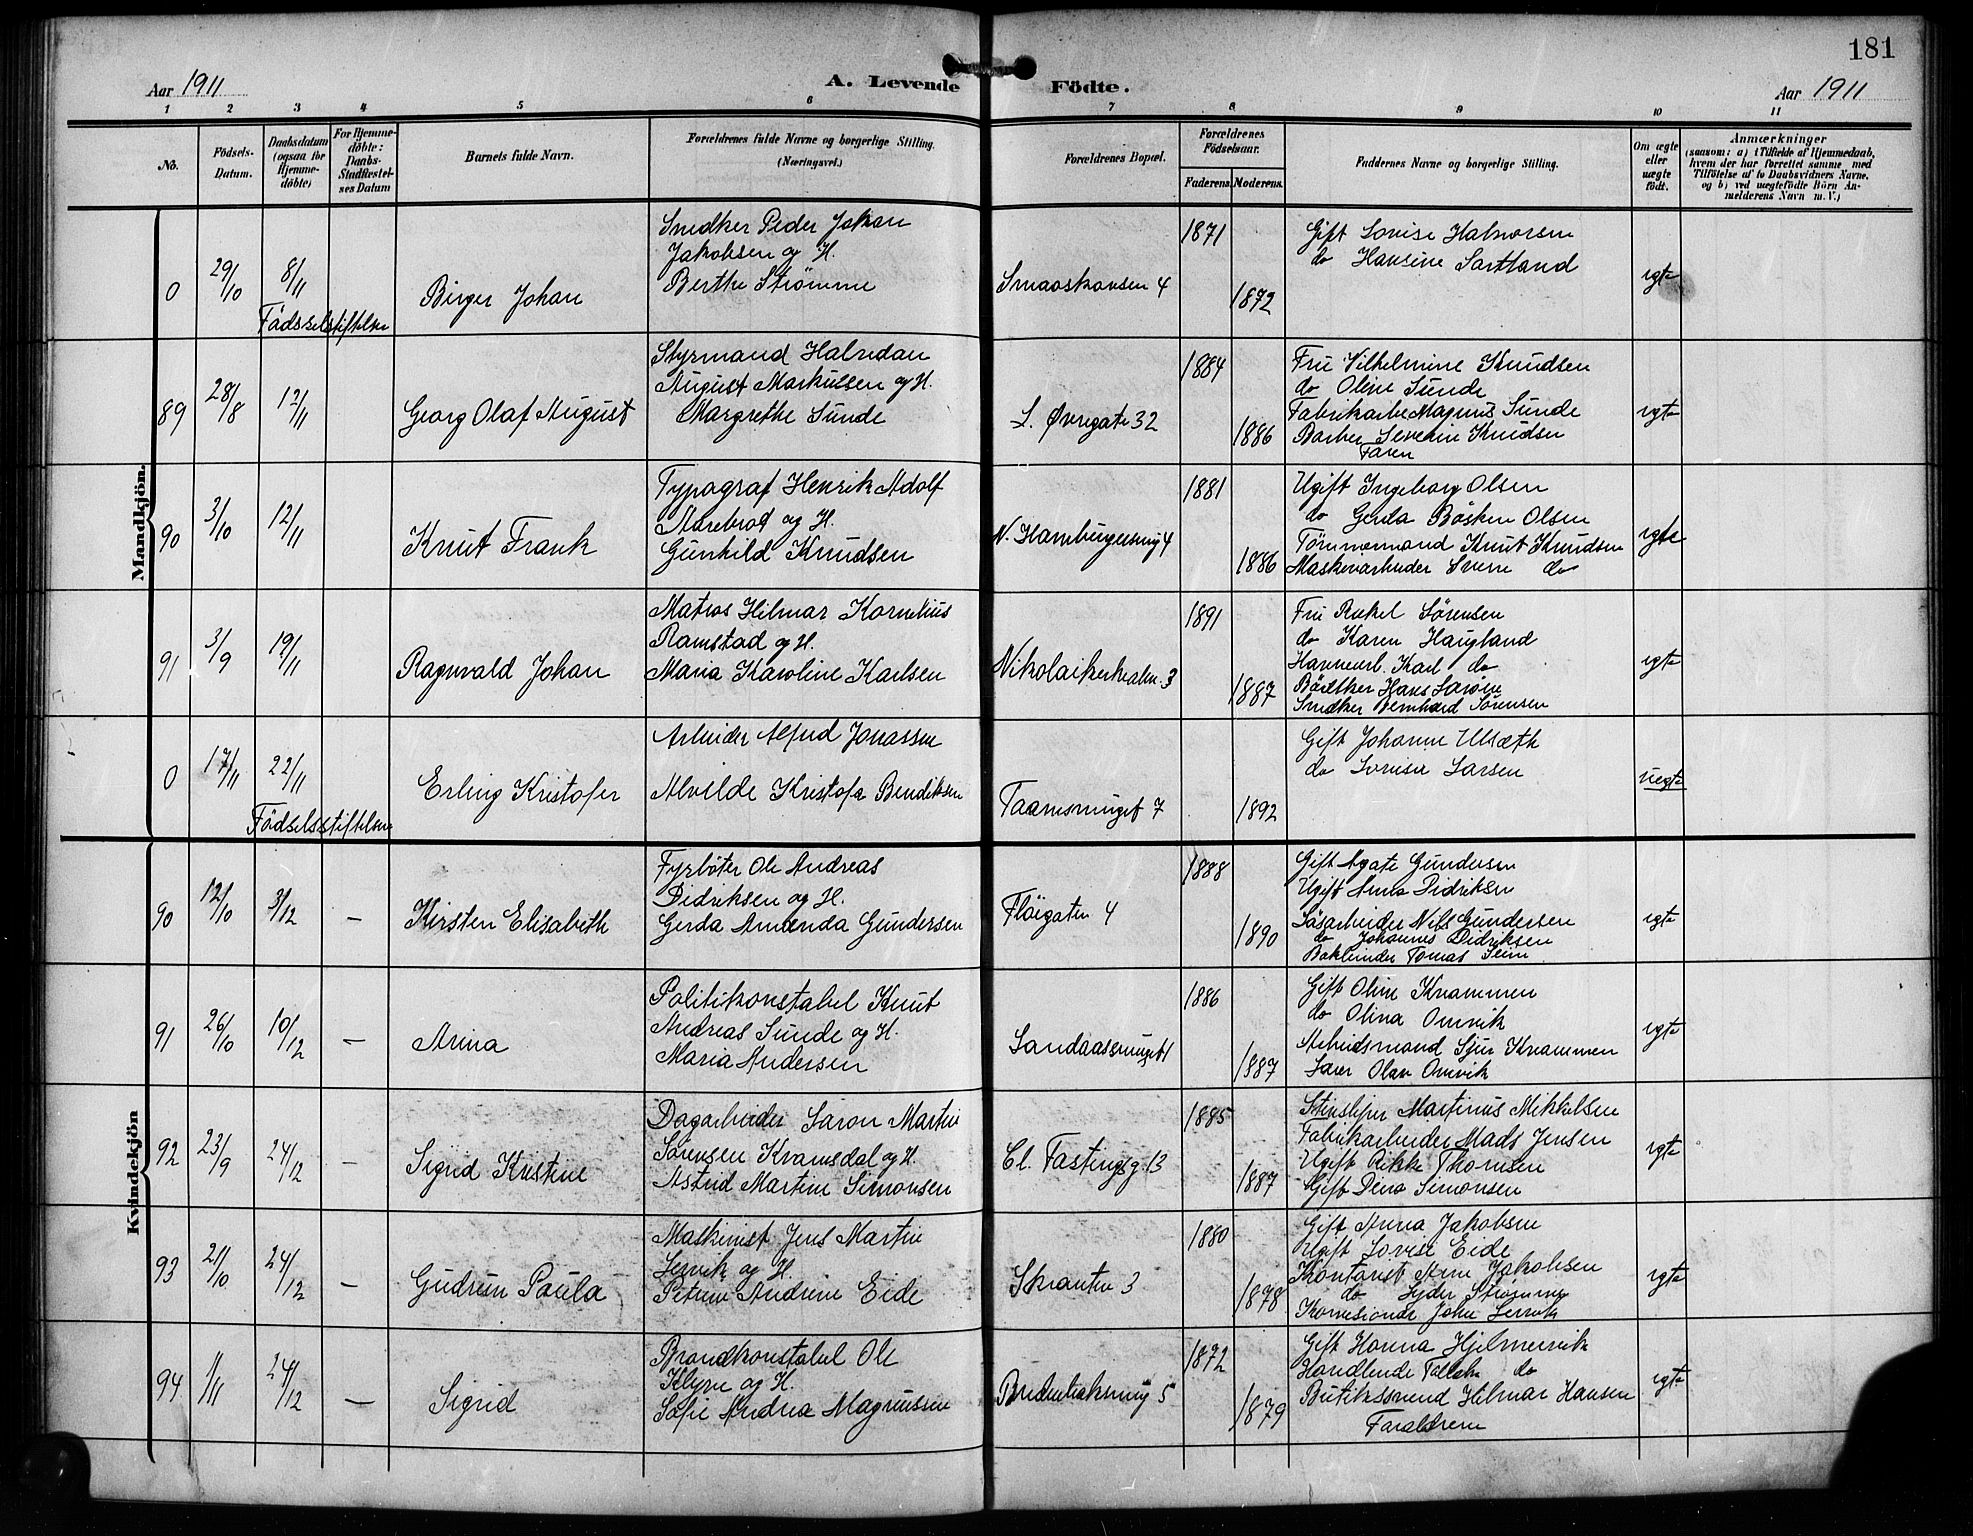 181
Aar 1911
A. Levende Födte.
Aar 1911
1 2 3 4 5 6 7 8 9 10 11
No.
Födsels-
Datum.
Daabsdatum
(ogsaa for
Hjemme-
döbte)
For Hjemme-
döbte:
Daabs-
Stadfæstel-
ses Datum
Barnets fulde Navn.
Forældrenes fulde Navne og borgerlige Stilling.
(Næringsvei.)
Forældrenes Bopæl.
Forældrenes
Födselsaar.
Faderens. Moderens.
Faddernes Navne og borgerlige Stilling.
Om ægte
eller
uægte
födt.
Anmærkninger
(saasom: a) i Tilfælde af Hjemmedaab,
hvem der har forrettet samme med
Tilföielse af to Daabsvidners Navne.
og b) ved uægtefödte Börn An-
melderens Navn m. V.)
Mandkjön.
0
29/10
8/11
Fødselsstiftelsen
Birger Johan
Snedker Peder Johan
Jakobsen og H.
Berthe Strømme
Smaaskansen 4
1871
1872
Gift Lovise Halvorsen
do Hansine Sartland
egte
89
28/8
12/11
Georg Olaf August
Styrmand Halvdan
August Markussen og H.
Margrethe Sunde
L. Øvregate 32
1884
1886
Fru Vilhelmine Knudsen
do Oline Sunde
Fabrikarbe Magnus Sunde
Barber Severin Knudsen
Faren
egte
90
3/10
12/11
Knut Frank
Typograf Henrik Adolf
Aarebrot og H.
Gunhild Knudsen
N. Hamburgersmug 4
1881
1886
Ugift Ingeborg Olsen
do Gerda Bøsken Olsen
Tømmermand Knut Knudsen
Maskinarbeider Sverre do
egte
91
3/9
19/11
Ragnvald Johan
Matros Hilmar Kornelius
Ramstad og H.
Maria Karoline Karlsen
Nikolaikirkealm. 3
1891
1887
Fru Rakel Sørensen
do Karen Haugland
Havnearb. Karl do
Bødker Hans Larsen
Snedker Bernhard Sørensen
egte
0
17/11
22/11
Fødselsstiftelsen
Erling Kristofer
Arbeider Alfred Jonassen
Alvilde Kristofa Bendiksen
Taarnsmuget 7
1892
Gift Johanne Ulsæth
do Lovise Larsen
uegte
Kvindekjön
90
12/10
3/12
—
Kirsten Elisabeth
Fyrbøter Ole Andreas
Didriksen og H.
Gerda Amanda Gundersen
Fløigaten 4
1888
1890
Gift Agate Gundersen
Ugift Anna Didriksen
Løsarbeider Nils Gundersen
do Johannes Didriksen
Bokbinder Tomas Seim
egte
91
26/10
10/12
—
Anna
Politikonstabel Knut
Andreas Sunde og H.
Maria Andersen
Sandaassmuget 1
1886
1887
Gift Oline Knammen
do Olina Omvik
Arbeidsmand Sjur Knammen
Olav Omvik
egte
92
23/9
24/12
—
Sigrid Kristine
Dagarbeider Søren Martin
Sørensen Kvamsdal og H.
Astrid Martine Simonsen
Cl. Fastingsg. 13
1885
1887
Stensliper Martinus Mikkelsen
Fabrikarbeider Mads Jensen
Ugift Rikke Thomsen
Gift Dina Simonsen
egte
93
21/10
24/12
—
Gudrun Paula
Maskinist Jens Martin
Lervik og H.
Petrine Andrine Eide
Skranten 3
1880
1878
Gift Anna Jakobsen
Ugift Lovise Eide
Kontorist Arne Jakobsen
do Lyder Strømme
John Lervik
egte
94
1/11
24/12
—
Sigrid
Brandkonstabel Ole
Klyve og H.
Sofie Andrea Magnussen
5
1872
1879
Gift Hanna Hjelmervik
Handlende do
Butikssvend Hilmar Hansen
Forældrene
egte